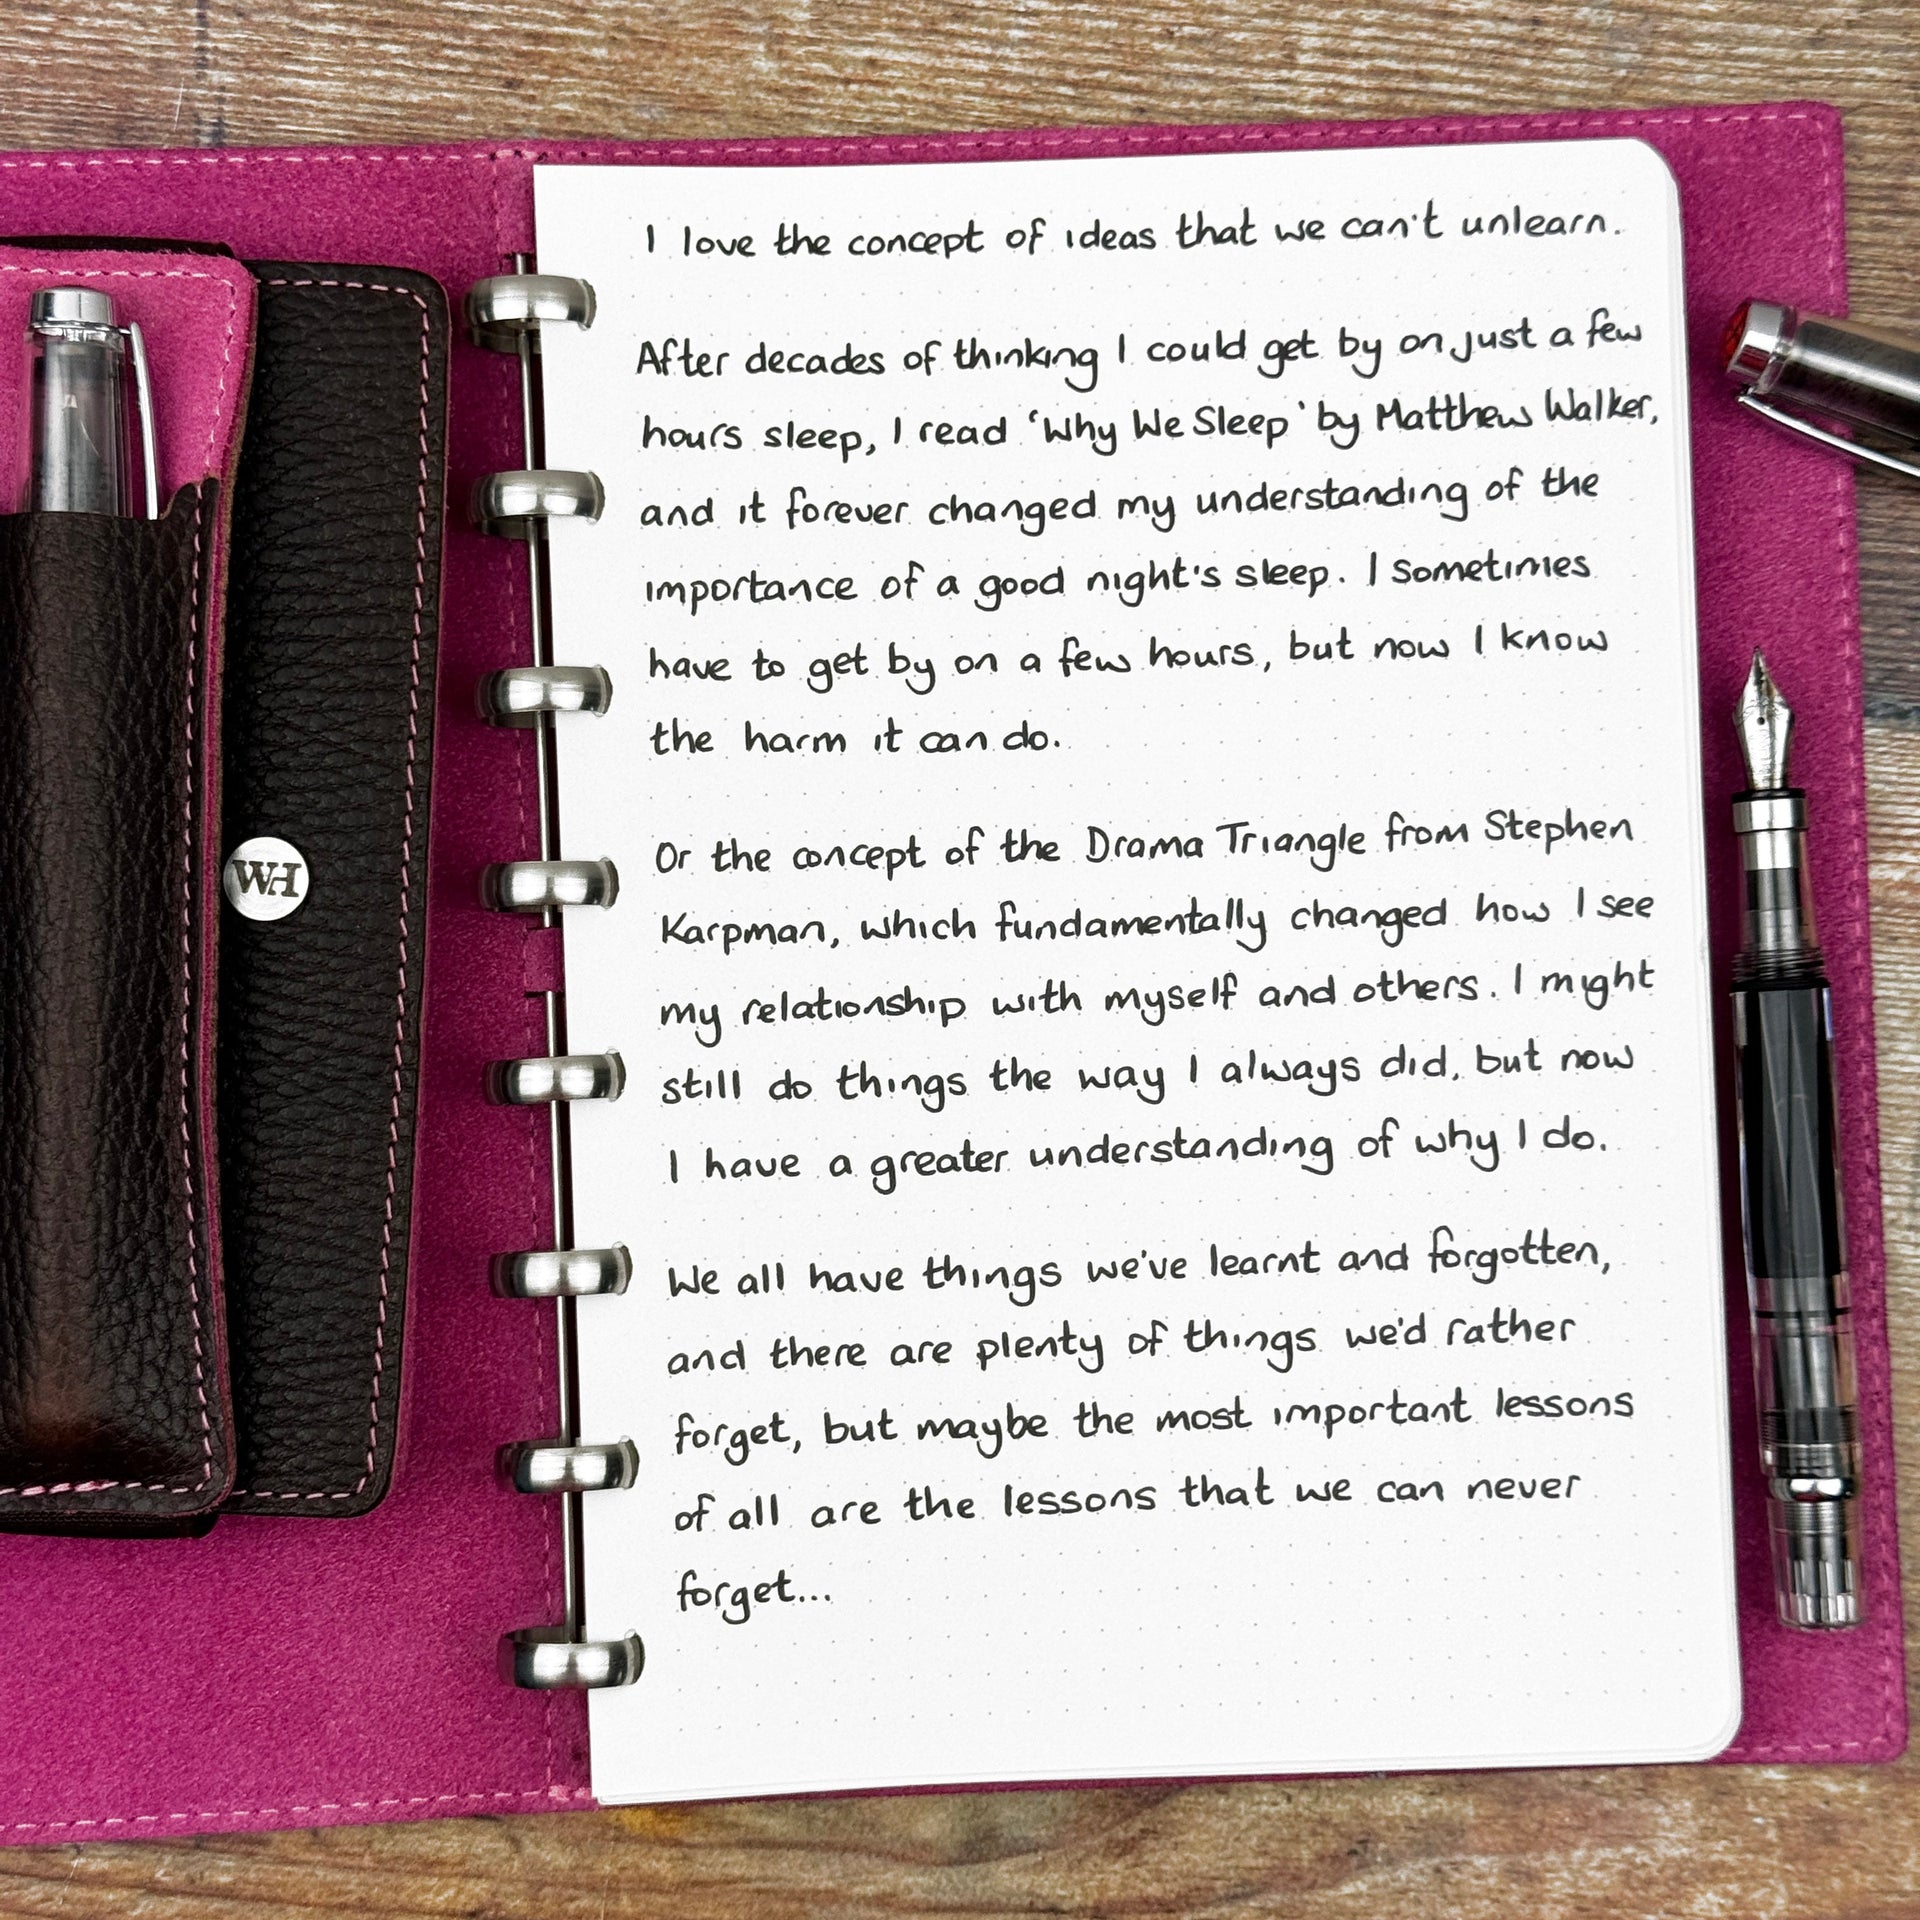 WH
I love the concept of ideas that we can't unlearn.
After decades of thinking I could get by on just a few
hours sleep, I read 'Why We Sleep' by Matthew Walker,
and it forever changed my understanding of the
importance of a good night's sleep. I sometimes
have to get by on a few hours, but now I know
the harm it can do.
Or the concept of the Drama Triangle from Stephen
Karpman, which fundamentally changed how I see
my relationship with myself and others. I might
still do things the way I always did, but now
I have a greater understanding of why I do.
We all have things we've learnt and forgotten,
and there are plenty of things we'd rather
forget, but maybe the most important lessons
of all are the lessons that we can never
forget...